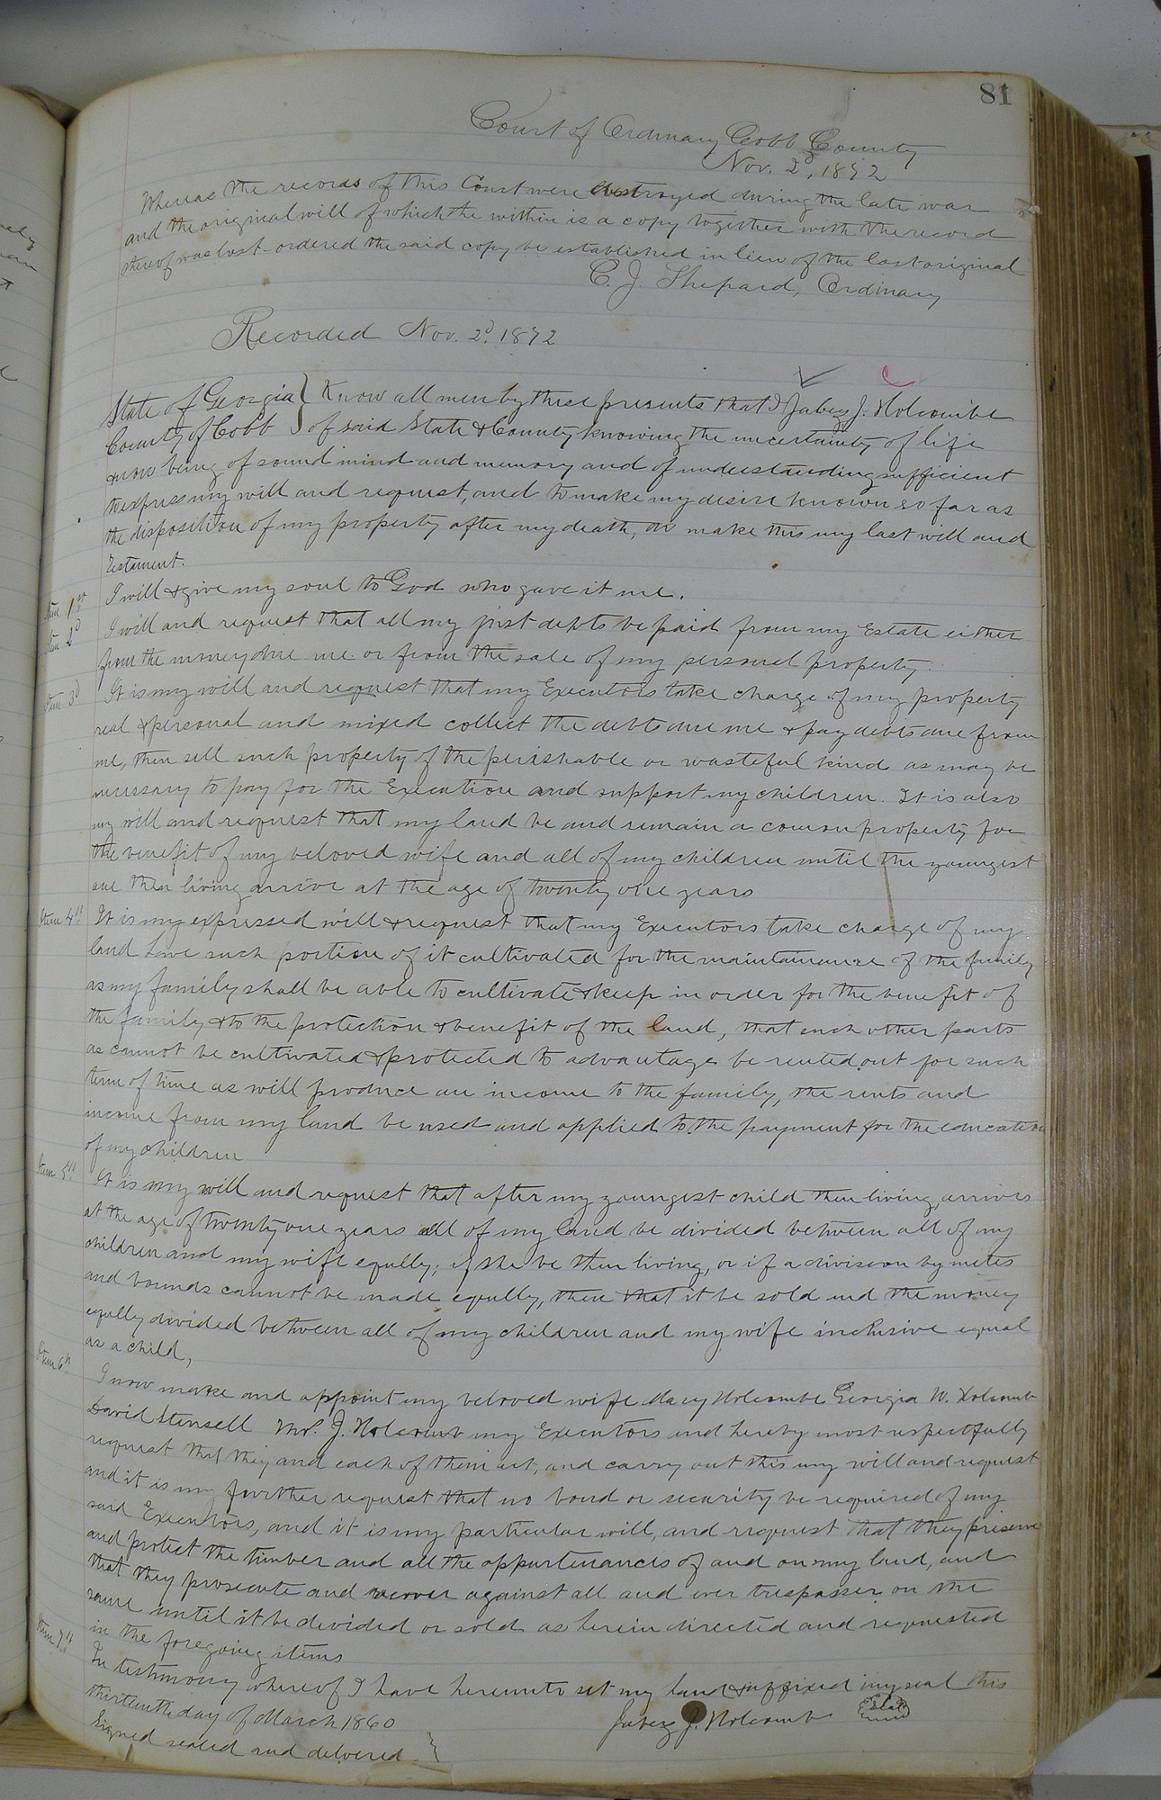 81
Court of Ordinary Cobb County
Nov. 2d, 1892
Whereas the records of this Court were destroyed during the late war
and the original will of which the within is a copy together with the record
thereof was lost ordered the said copy be established in lieu of the lost original
C. J. Shepard, Ordinary
Recorded Nov. 2d. 1892
State of Georgia } Know all men by these presents that I Jabez J. Holcombe
County of Cobb } of said State & County knowing the uncertainty of life
& now being of sound mind and memory and of understanding sufficient
to express my will and request, and to make my desire known so far as
the disposition of my property after my death, do make this my last will and
Testament.
Item 1st I will & give my soul to God who gave it me.
Item 2d I will and request that all my just debts be paid from my Estate either
from the money due me or from the sale of my personal property
Item 3d It is my will and request that my Executors take charge of my property
real & personal and mixed collect the debts due me & pay debts due from
me, then sell such property of the perishable or wasteful kind as may be
necessary to pay for the Execution and support my children. It is also
my will and request that my land be and remain a comon property for
the benefit of my beloved wife and all of my children until the youngest
one then living arrive at the age of twenty one years
Item 4th It is my expressed will & request that my Executors take charge of my
land have such portion of it cultivated for the maintainance of the family
as my family shall be able to cultivate & keep in order for the benefit of
the family & to the protection & benefit of the land, that such other parts
as cannot be cultivated & protected to advantage be rented out for such
term of time as will produce an income to the family, the rents and
income from my land be used and applied to the payment for the education
of my children
Item 5th It is my will and request that after my youngest child then living arrives
at the age of twenty one years all of my land be divided between all of my
children and my wife equally; if she be then living, or if a division by metes
and bounds cannot be made equally, then that it be sold and the money
equally divided between all of my children and my wife inclusive equal
as a child,
Item 6th I now make and appoint my beloved wife Macy Holcombe Georgia W. Holcomb
David Stensell Thos. J. Holcomb my Executors and hereby most respectfully
request that they and each of them act, and carry out this my will and request
and it is my further request that no bond or security be required of my
said Executors, and it is my particular will, and request that they preserve
and protect the timber and all the appurtenances of and on my land, and
that they prosecute and recover against all and ever trespasser on the
same until it be divided or sold as herein directed and requested
in the foregoing items
Item 7th In testimony whereof I have hereunto set my hand & affixed my seal this
thirteenth day of March 1860 Jabez J. Holcomb Seal
Signed sealed and delivered }